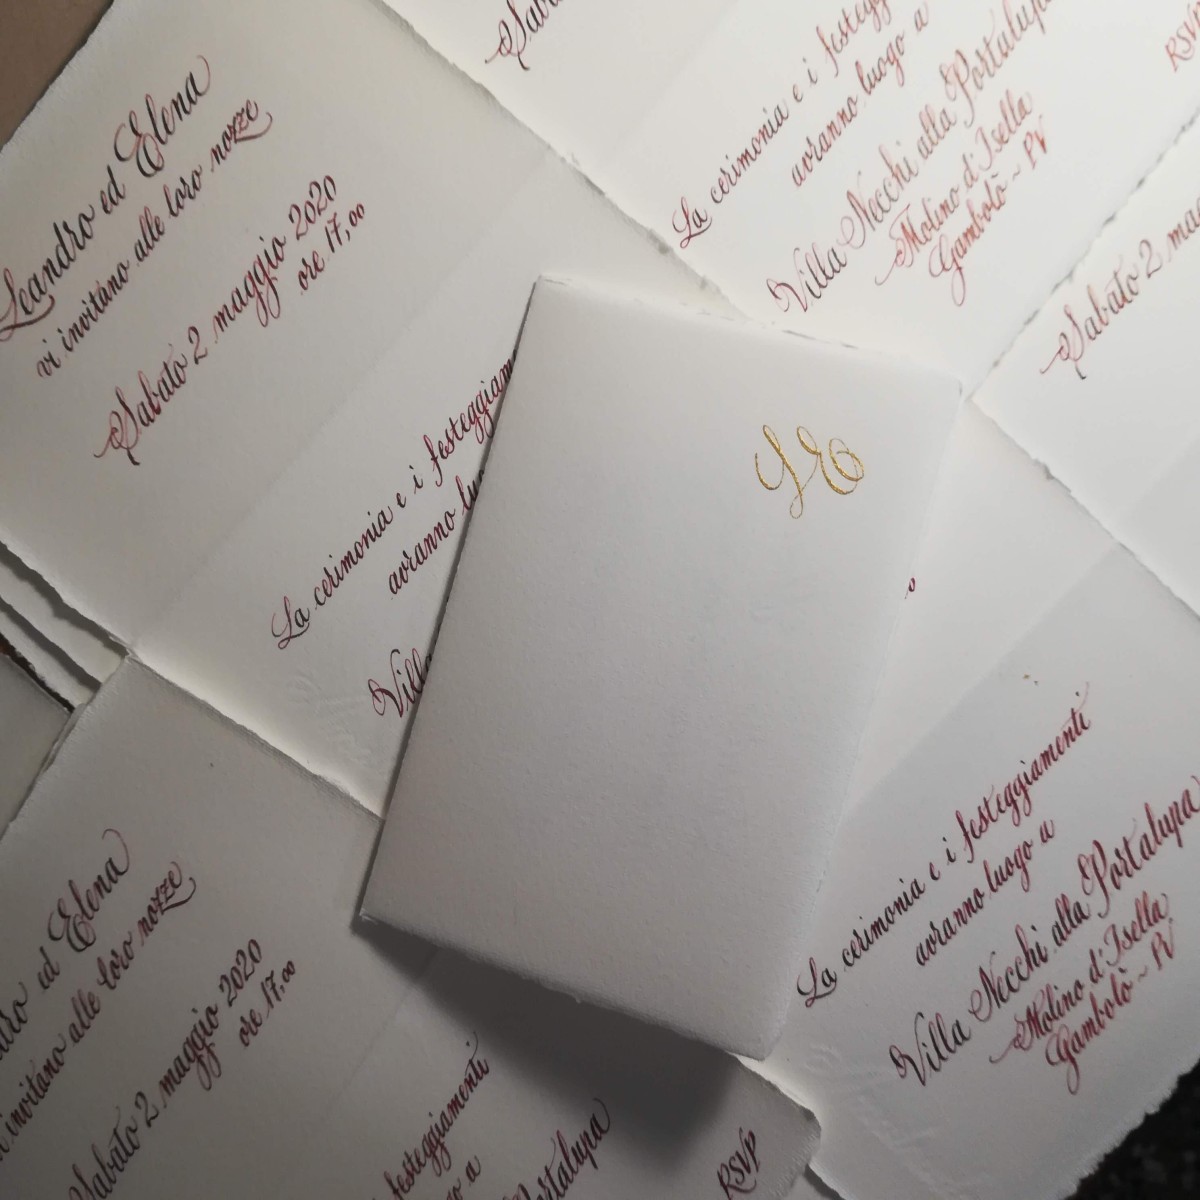 Leandro ed Elena
vi invitano alle loro nozze
Sabato 2 maggio 2020
ore 17,00
La cerimonia e i festeggiam
avranno lu
Vill
La cerimonia e i festegg
avranno luogo a
Villa Necchi alla Portalupa
Molino d'Isella
Gambolò ~ PV
RSVP
Sabato 2 ma
LE
La cerimonia e i festeggiamenti
avranno luogo a
Villa Necchi alla Portalupa
Molino d'Isella
Gambolò ~ PV
dro ed Elena
invitano alle loro nozze
Sabato 2 maggio 2020
ore 17,00
festeggiamenti
go a
ortalupa
RSVP